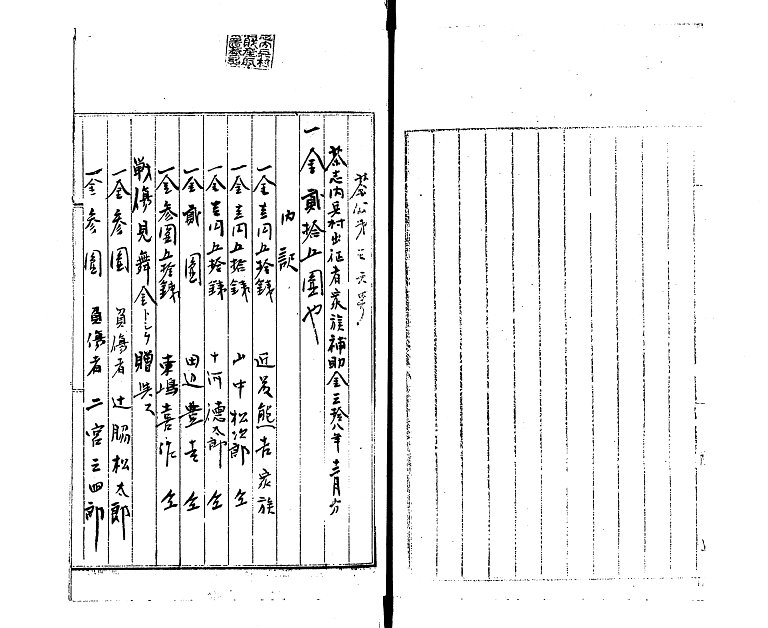 茶志内兵村出征者家族補助金三拾八年十二月分
一金貳拾五圓也
内訳
一金壱円五拾銭 近英熊吉家族
一金壱円五拾銭 山中松次郎 仝
一金壱円五拾銭 十河徳太郎 仝
一金貳圓 田辺豊吉 仝
一金参圓五拾銭 東嶋喜作 仝
戦傷見舞金トシテ贈與ス
一金参圓 負傷者 辻脇松太郎
一金参圓 負傷者 二宮三四郎